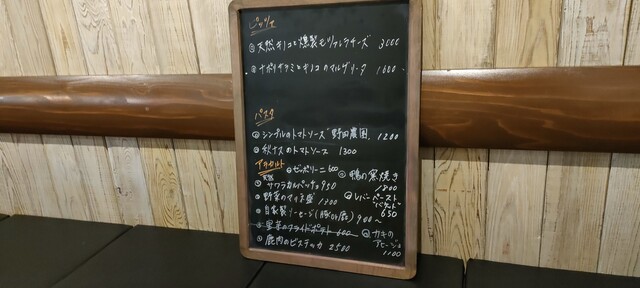 ピッツァ
天然キノコと燻製モッツァレラチーズ 3000
ナポリサラミとキノコのマルゲリータ 1600
パスタ
シンプルのトマトソース 野田農園 1200
秋ナスのトマトソース 1300
アラカルト
ゼッポリーニ 600
鴨の窯焼き 1800
天然 サワラカルパッチョ 950
レバーペースト バケット 650
野菜のマリネ盛 1300
自家製ソーセージ(豚or鹿) 900～
里芋のフライドポテト 600
カキのアヒージョ 1100
鹿肉のビステッカ 2500